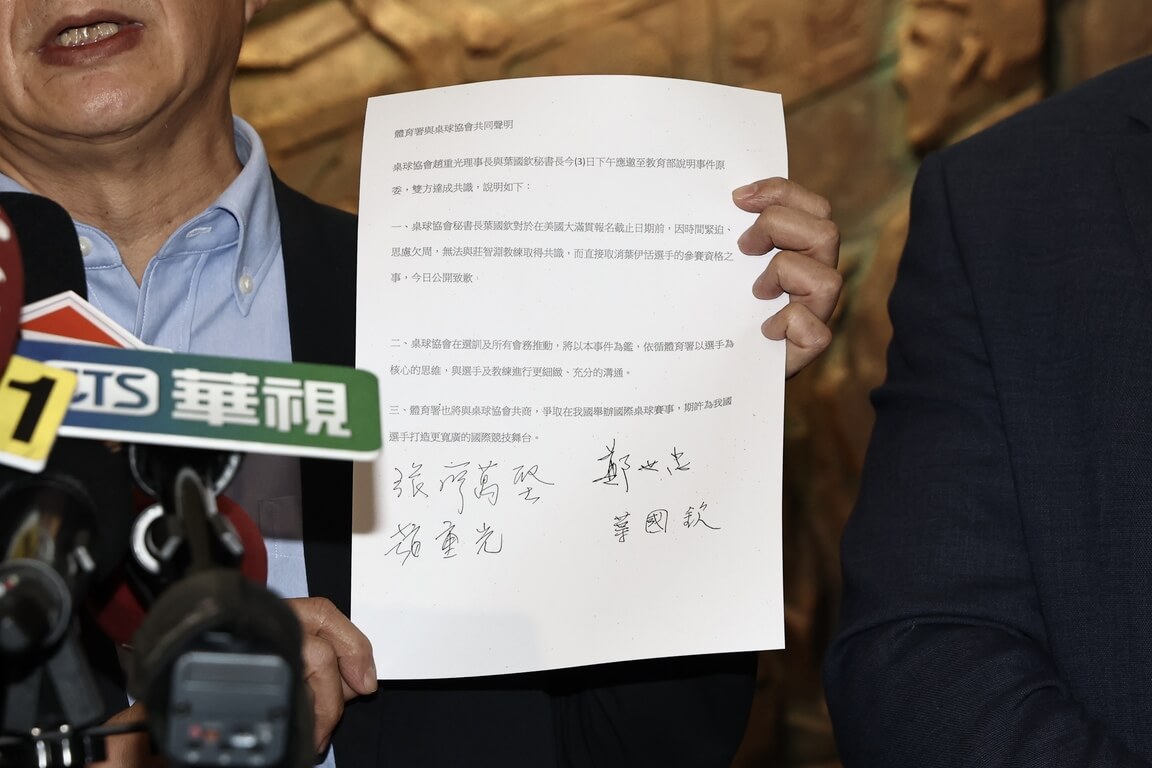 體育署與桌球協會共同聲明
桌球協會趙重光理事長與葉國欽秘書長今(3)日下午應邀至教育部說明事件原
委，雙方達成共識，說明如下：
一、桌球協會秘書長葉國欽對於在美國大滿貫報名截止日期前，因時間緊迫、
思慮欠周，無法與莊智淵教練取得共識，而直接取消葉伊恬選手的參賽資格之
事，今日公開致歉。
二、桌球協會在選訓及所有會務推動，將以本事件為鑑，依循體育署以選手為
核心的思維，與選手及教練進行更細緻、充分的溝通。
三、體育署也將與桌球協會共商，爭取在我國舉辦國際桌球賽事，期許為我國
選手打造更寬廣的國際競技舞台。
張廖萬堅 鄭世忠
趙重光 葉國欽
1
CTS 華視